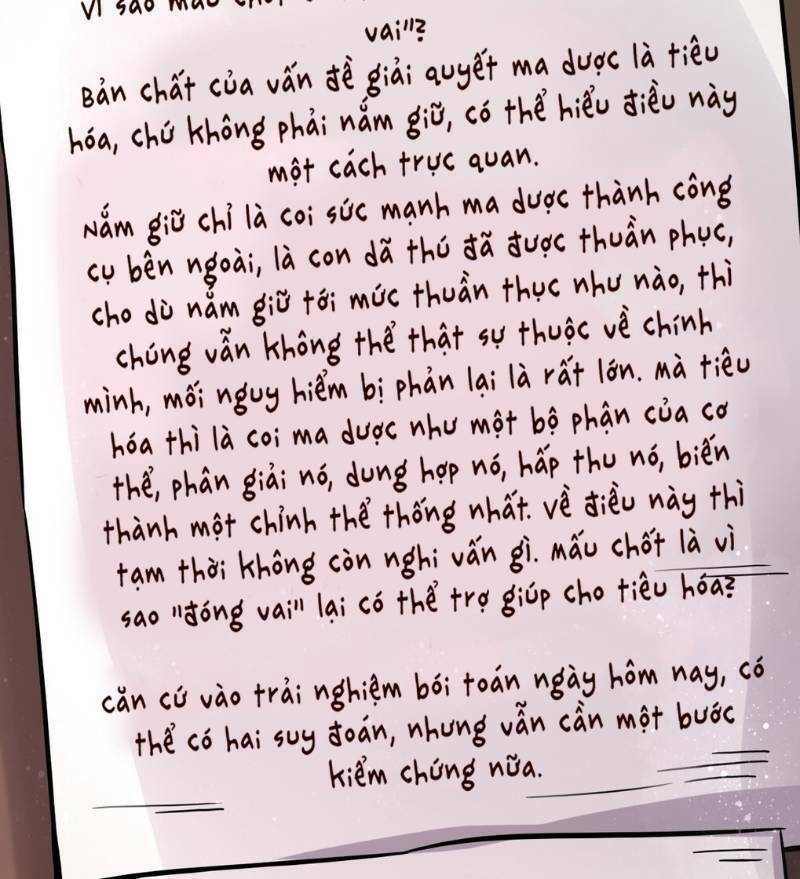 vì sao mấu chốt
vai"?
Bản chất của vấn đề giải quyết ma dược là tiêu
hóa, chứ không phải nắm giữ, có thể hiểu điều này
một cách trực quan.
Nắm giữ chỉ là coi sức mạnh ma dược thành công
cụ bên ngoài, là con dã thú đã được thuần phục,
cho dù nắm giữ tới mức thuần thục như nào, thì
chúng vẫn không thể thật sự thuộc về chính
mình, mối nguy hiểm bị phản lại là rất lớn. Mà tiêu
hóa thì là coi ma dược như một bộ phận của cơ
thể, phân giải nó, dung hợp nó, hấp thu nó, biến
thành một chỉnh thể thống nhất. Về điều này thì
tạm thời không còn nghi vấn gì. Mấu chốt là vì
sao "đóng vai" lại có thể trợ giúp cho tiêu hóa?
Căn cứ vào trải nghiệm bói toán ngày hôm nay, có
thể có hai suy đoán, nhưng vẫn cần một bước
kiểm chứng nữa.